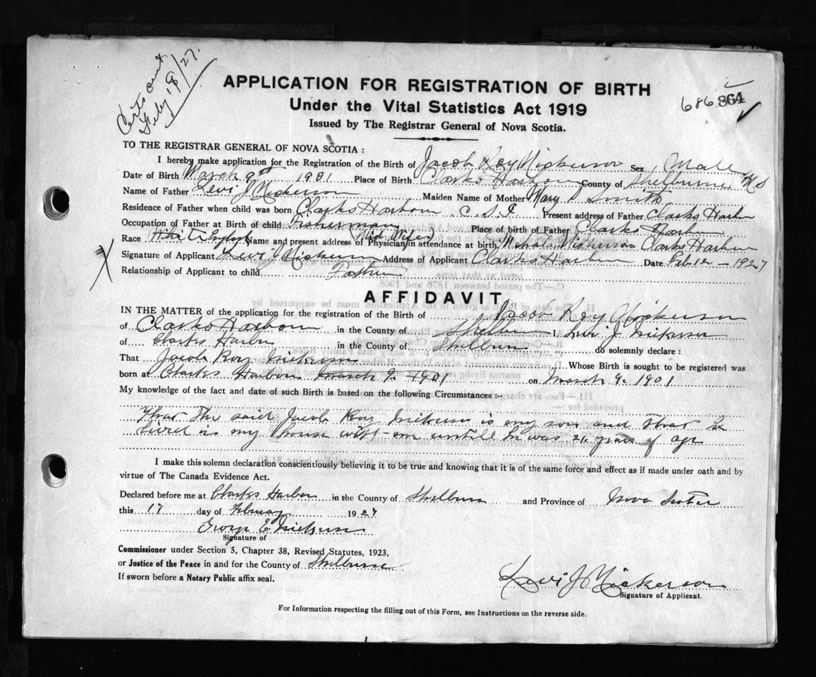 Certs out
July 18/27.
APPLICATION FOR REGISTRATION OF BIRTH
Under the Vital Statistics Act 1919
686 864
Issued by The Registrar General of Nova Scotia.
TO THE REGISTRAR GENERAL OF NOVA SCOTIA :
I hereby make application for the Registration of the Birth of Jacob Roy Nickerson Sex, Male
Date of Birth March 9th 1901 Place of Birth Clarks Harbour County of Shelburne N S
Name of Father Levi J Nickerson Maiden Name of Mother Mary Smith
Residence of Father when child was born Clarks Harbour C. S. I Present address of Father Clarks Harbor
Occupation of Father at Birth of child Fisherman Place of birth of Father Clarks Harbor
Race Name and present address of Physician in attendance at birth (Mid Wife) Nickerson Clarks Harbor
Signature of Applicant Levi J Nickerson Address of Applicant Clarks Harbor Date Feb 12 - 1927
Relationship of Applicant to child Father
AFFIDAVIT
IN THE MATTER of the application for the registration of the Birth of Jacob Roy Nickerson
of Clarks Harbour in the County of Shelburn I, Levi J. Nickerson
of Clarks Harbor in the County of Shelburn do solemnly declare :
That Jacob Roy Nickerson Whose Birth is sought to be registered was
born at Clarks Harbor March 9. 1901 on March 9. 1901
My knowledge of the fact and date of such Birth is based on the following Circumstances :-
That The said Jacob Roy Nickerson is my son and That he
lived in my house with me untill he was 21 years of age
I make this solemn declaration conscientiously believing it to be true and knowing that it is of the same force and effect as if made under oath and by
virtue of The Canada Evidence Act.
Declared before me at Clarks Harbor in the County of Shelburn and Province of Nova Scotia
this 17 day of February 1927
George E. Nickerson
Signature of
Commissioner under Section 5, Chapter 38, Revised Statutes, 1923,
or Justice of the Peace in and for the County of Shelburne
If sworn before a Notary Public affix seal.
Levi J. Nickerson
Signature of Applicant.
For Information respecting the filling out of this Form, see Instructions on the reverse side.